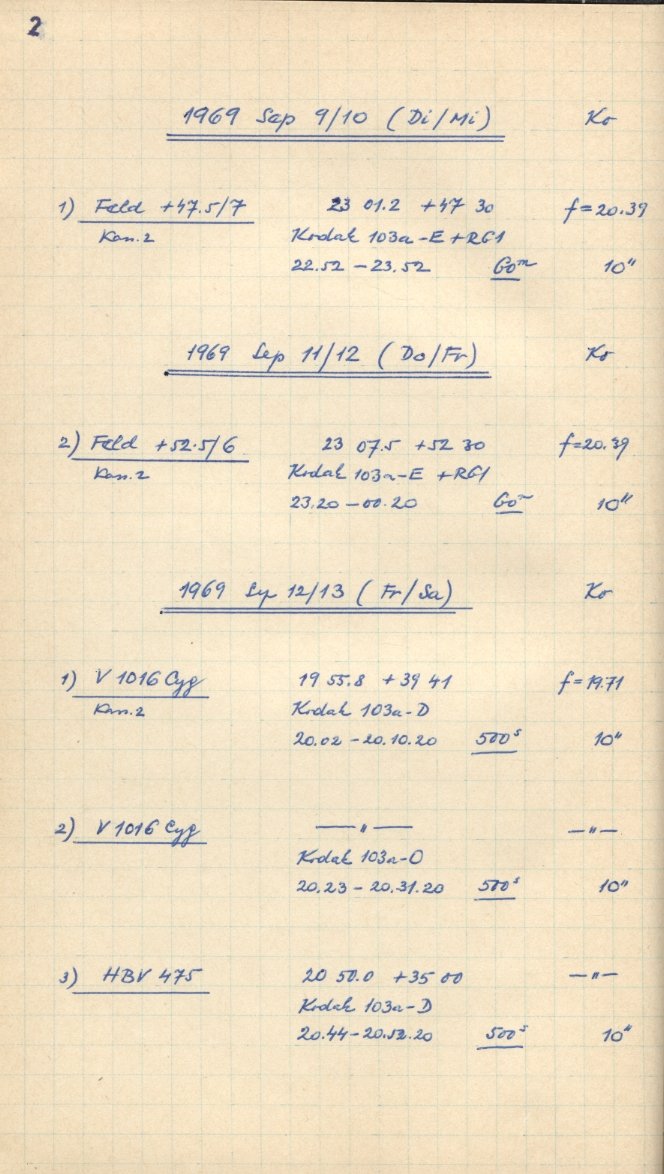 2
1969 Sep 9/10 (Di/Mi) Ko
1) Feld +47.5/7 23 01.2 +47 30 f=20.39
Kan.2 Kodak 103a-E +RG1
22.52 - 23.52 60ᵐ 10"
1969 Sep 11/12 (Do/Fr) Ko
2) Feld +52.5/6 23 07.5 +52 30 f=20.39
Kan.2 Kodak 103a-E +RG1
23.20 - 00.20 60ᵐ 10"
1969 Sep 12/13 (Fr/Sa) Ko
1) V 1016 Cyg 19 55.8 +39 41 f=19.71
Kan.2 Kodak 103a-D
20.02 - 20.10.20 500ˢ 10"
2) V 1016 Cyg —"— —"—
Kodak 103a-O
20.23 - 20.31.20 500ˢ 10"
3) HBV 475 20 50.0 +35 00 —"—
Kodak 103a-D
20.44 - 20.52.20 500ˢ 10"